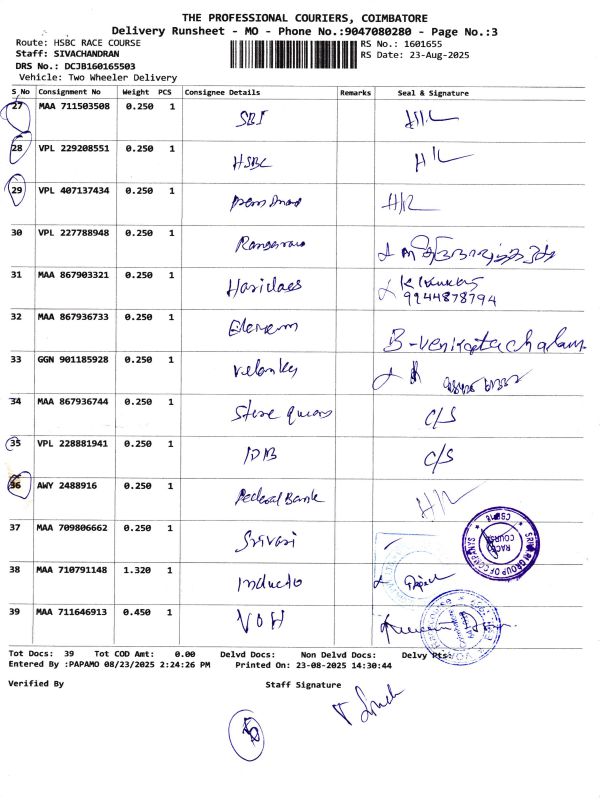 THE PROFESSIONAL COURIERS, COIMBATORE
Delivery Runsheet - MO - Phone No.:9047080280 - Page No.:3
Route: HSBC RACE COURSE
RS No.: 1601655
Staff: SIVACHANDRAN
RS Date: 23-Aug-2025
DRS No.: DCJB160165503
Vehicle: Two Wheeler Delivery
S No Consignment No Weight PCS Consignee Details Remarks Seal & Signature
27 MAA 711503508 0.250 1 SBI H/L
28 VPL 229208551 0.250 1 HSBC H/L
29 VPL 407137434 0.250 1 H/L
30 VPL 227788948 0.250 1
31 MAA 867903321 0.250 1 Haridaes
9944878794
32 MAA 867936733 0.250 1 B-venkatachalam
33 GGN 901185928 0.250 1
34 MAA 867936744 0.250 1 C/S
35 VPL 228881941 0.250 1 IDB C/S
36 AWY 2488916 0.250 1 Federal Bank H/L
37 MAA 709806662 0.250 1 Srivari
38 MAA 710791148 1.320 1 Inducto
39 MAA 711646913 0.450 1 VOH
SRIVARI GROUP OF COMPANYS
RACE COURSE
CBE-18
Tot Docs: 39 Tot COD Amt: 0.00 Delvd Docs: Non Delvd Docs: Delvy Pts:
Entered By :PAPAMO 08/23/2025 2:24:26 PM Printed On: 23-08-2025 14:30:44
Verified By Staff Signature